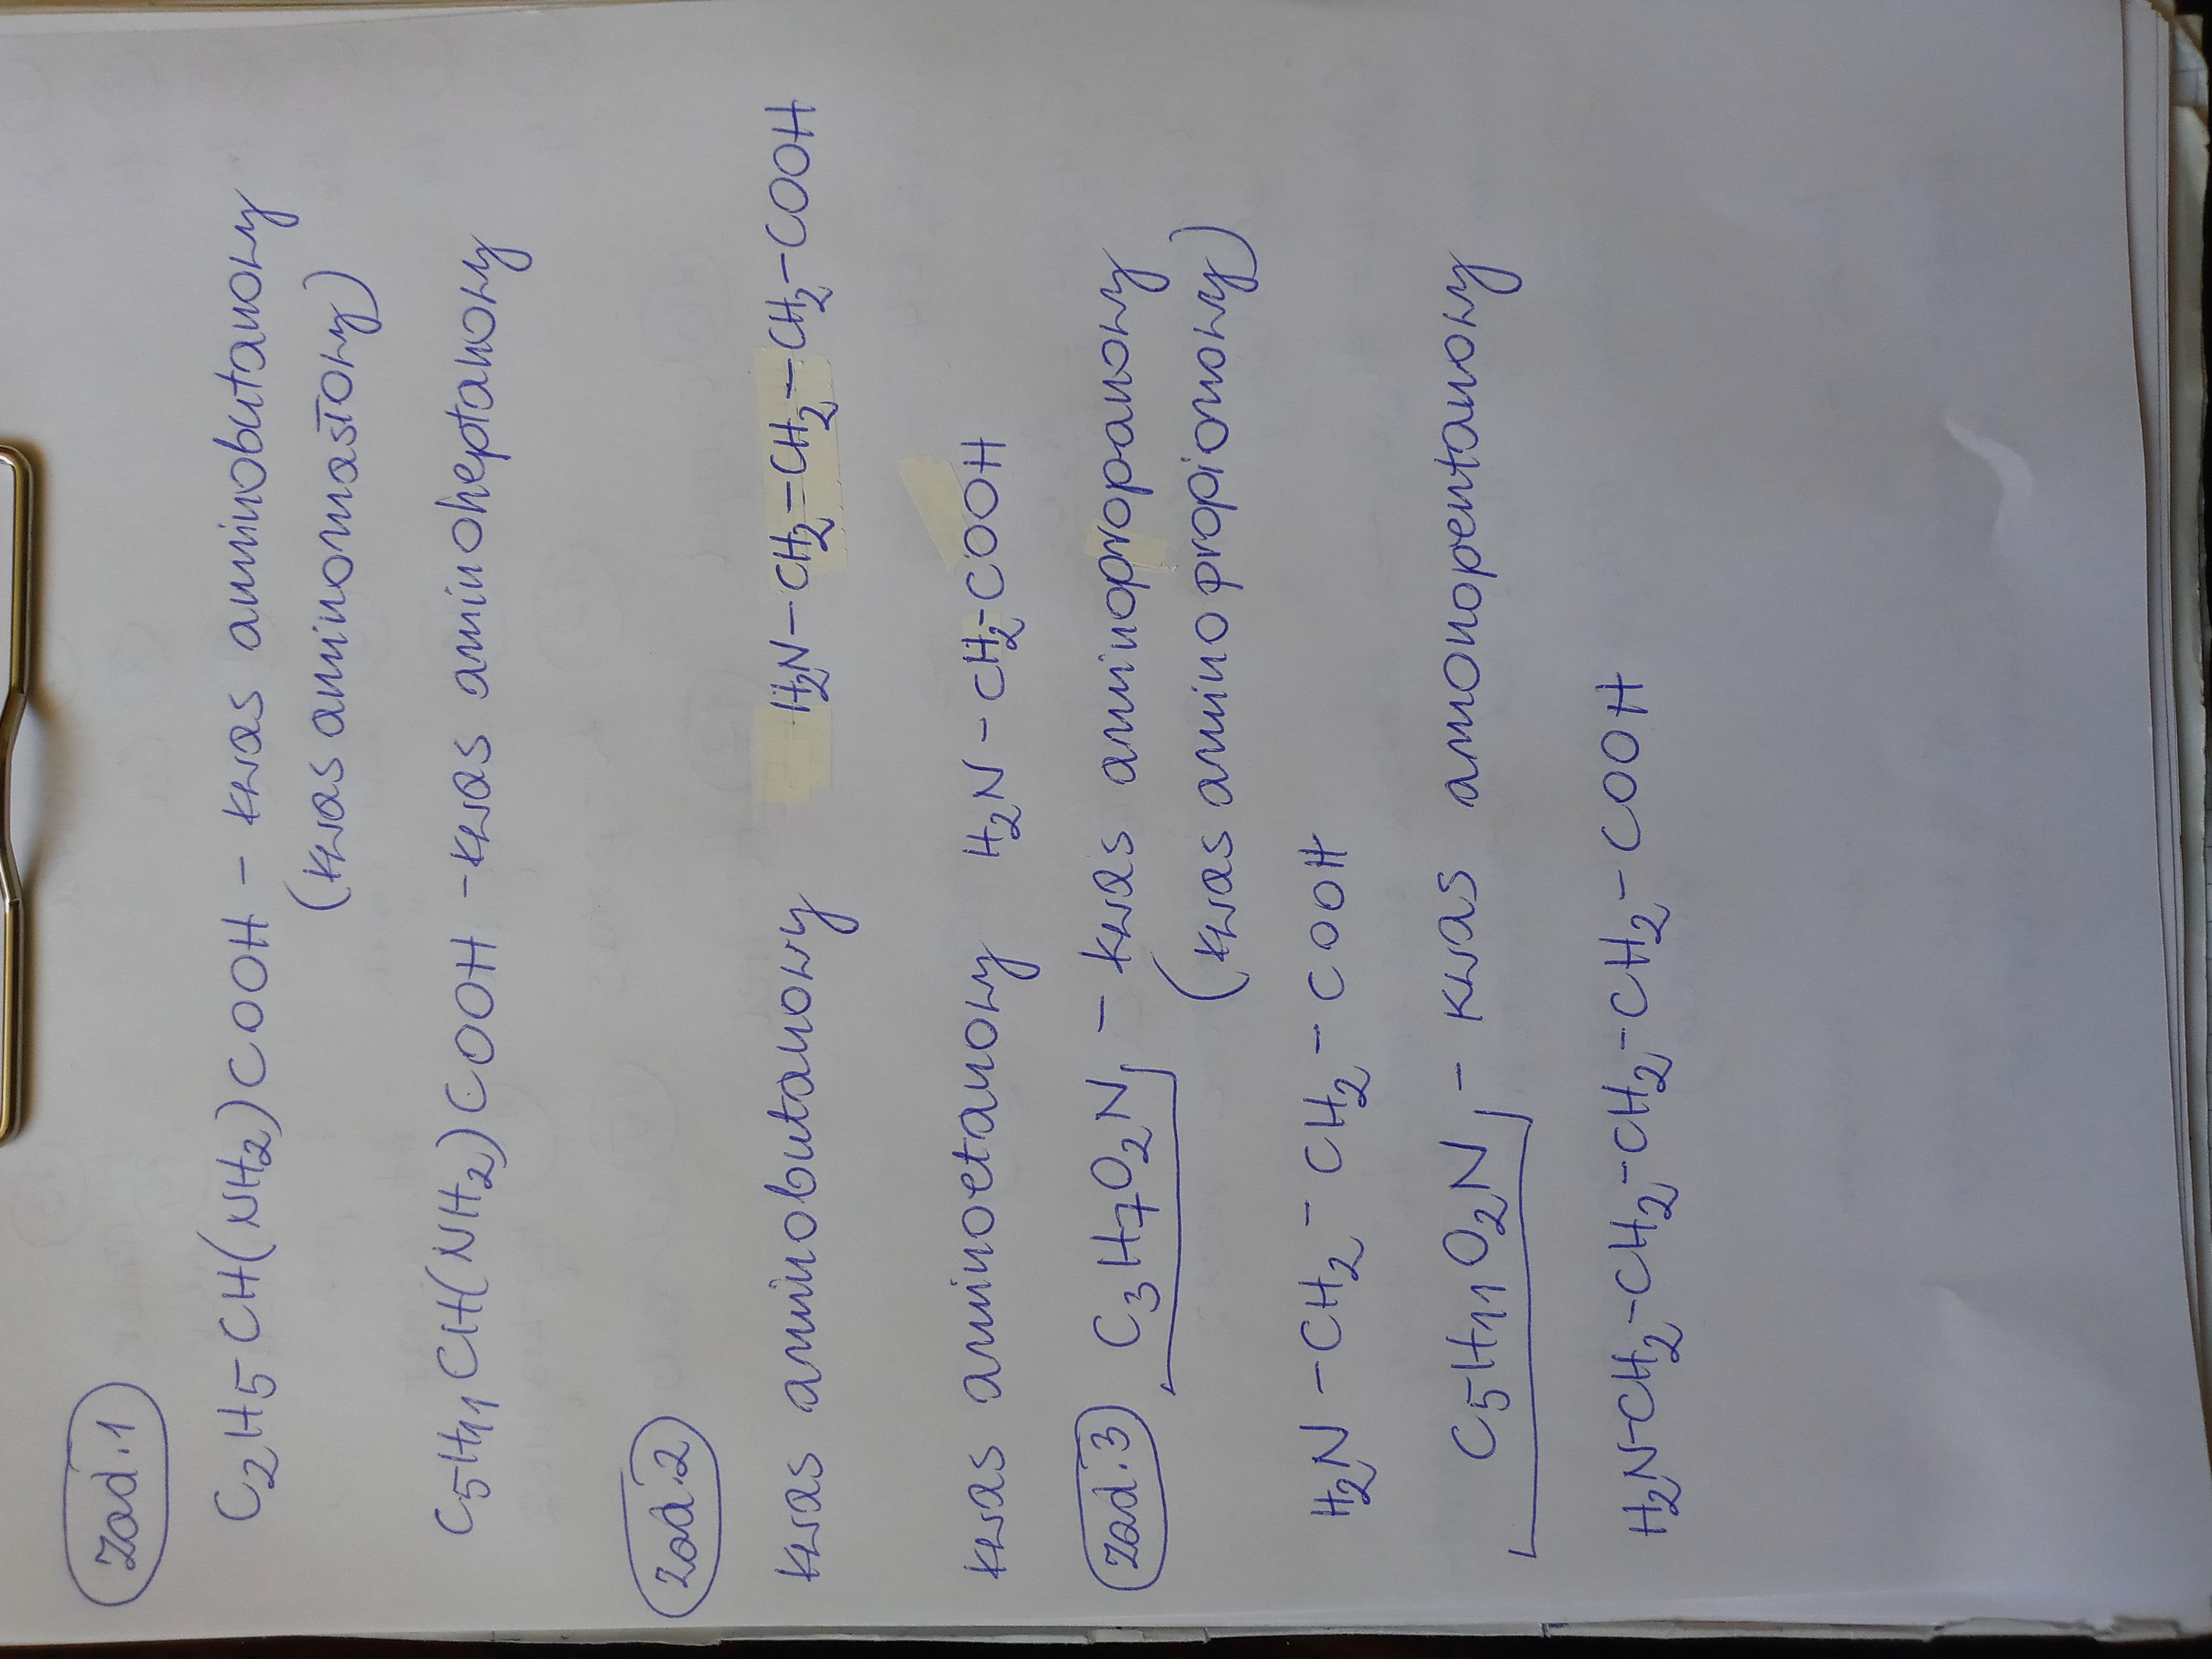 Zad.1
C2H5CH(NH2)COOH - kwas aminobutanowy
(kwas aminomasłowy)
C5H11CH(NH2)COOH - kwas aminoheptanowy
Zad.2
kwas aminobutanowy H2N-CH2-CH2-CH2-COOH
kwas aminoetanowy H2N-CH2-COOH
Zad.3 C3H7O2N - kwas aminopropanowy
(kwas aminopropionowy)
H2N-CH2-CH2-COOH
C5H11O2N - kwas amonopentanowy
H2N-CH2-CH2-CH2-CH2-COOH